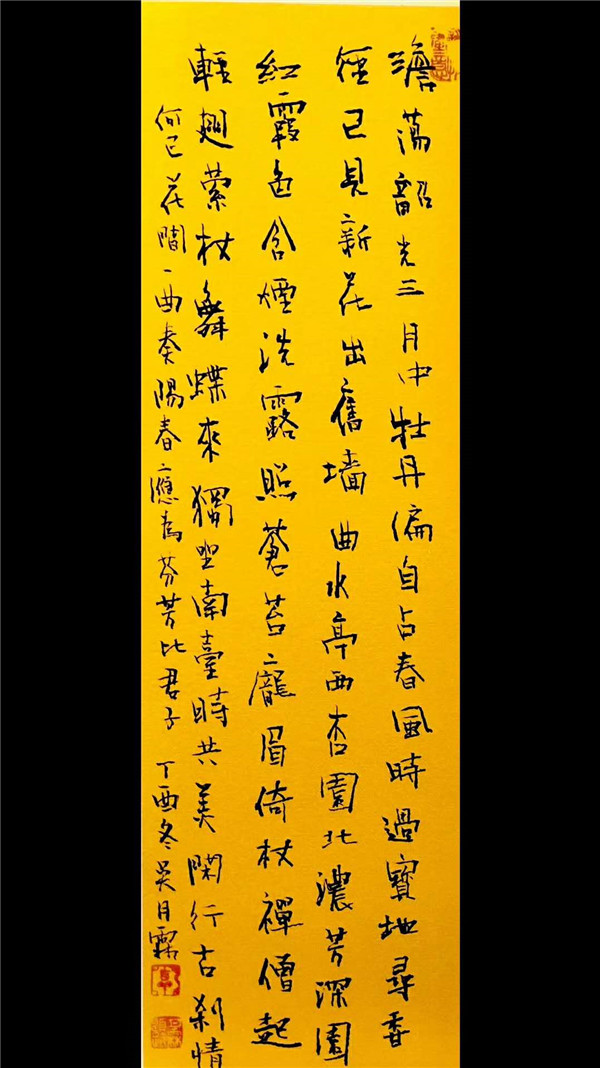 澹蕩韶光三月中牡丹偏自占春風時過寶地尋香
徑已見新花出舊墻曲水亭西杏園北濃芳深園
紅霞色含煙洗露照蒼苔龐眉倚杖禪僧起
輕翅縈杖舞蝶來獨坐南臺時共美閑行古剎情
何已花間一曲奏陽春應為芬芳比君子 丁酉冬吳月霖